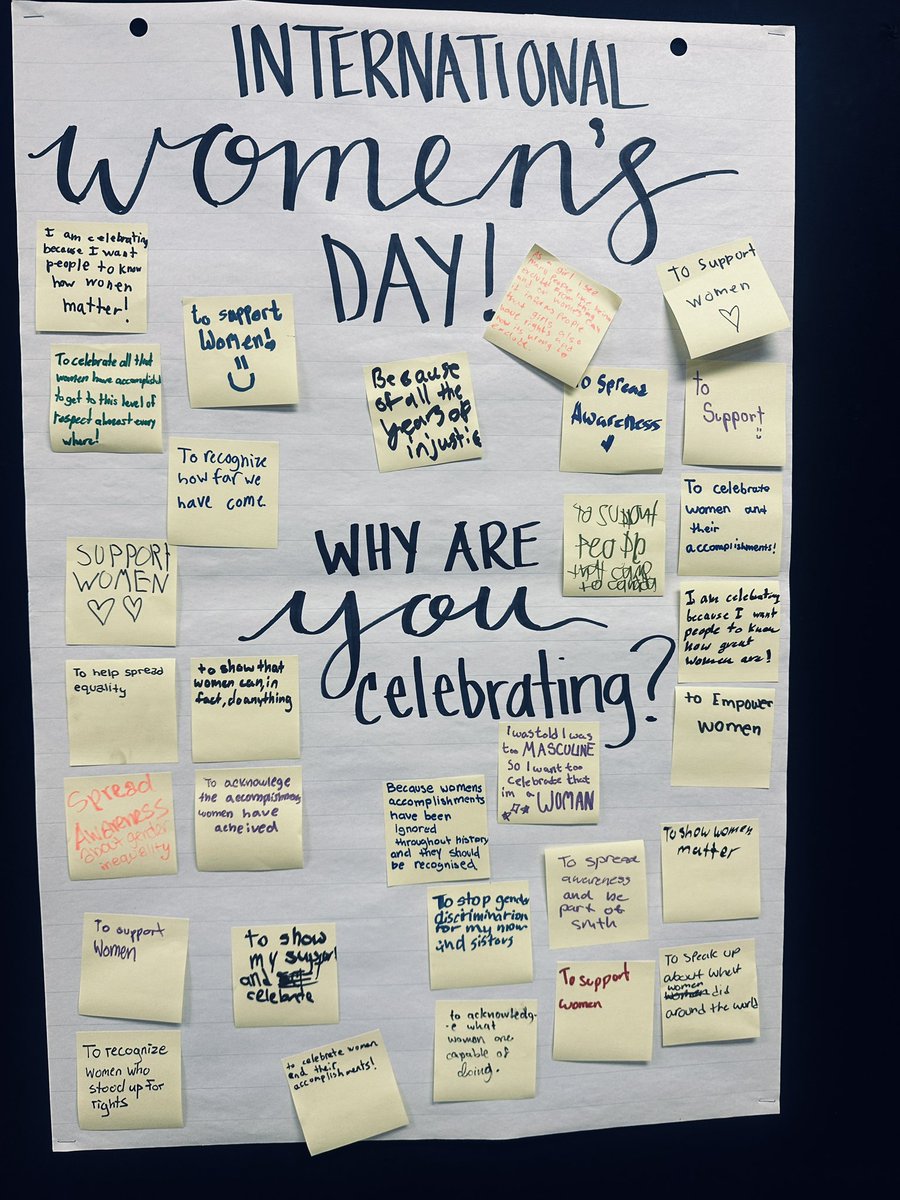 INTERNATIONAL
women's
DAY!
I am celebrating
because I want
people to know
how women
matter!
to support
Women!
To celebrate all that
women have accomplish
to get to this level of
respect almost every
where!
To recognize
how far we
have come
Because
of all the
years of
injustic
As a girl I see
many people
girls also
have rights and
how is wrong to
exclude
To support
women
To Spread
Awareness
to
Support!
WHY ARE
you
celebrating?
to support
To celebrate
women and
their
accomplishments!
SUPPORT
WOMEN
I am celebrating
because I want
people to know
how great
women are!
To help spread
equality
to show that
women can, in
fact, do anything
to Empower
women
Spread
Awareness
about gender
inequality
To acknowlege
the accomplishments
women have
acheived
I was told I was
too MASCULINE
So I want too
celebrate that
im a WOMAN
Because womens
accomplishments
have been
Ignored
throughout history
and they should
be recognised
To show women
matter
To spread
awareness
and be
part of
smth
To stop gender
discrimination
for my mom
and sisters
To support
Women
to show
my support
and
celebrate
To support
women
To speak up
about what
women
did
around the world
to acknowledg-
e what
women are
capable of
doing.
To recognize
women who
stood up for
rights
to celebrate women
and their
accomplishments!